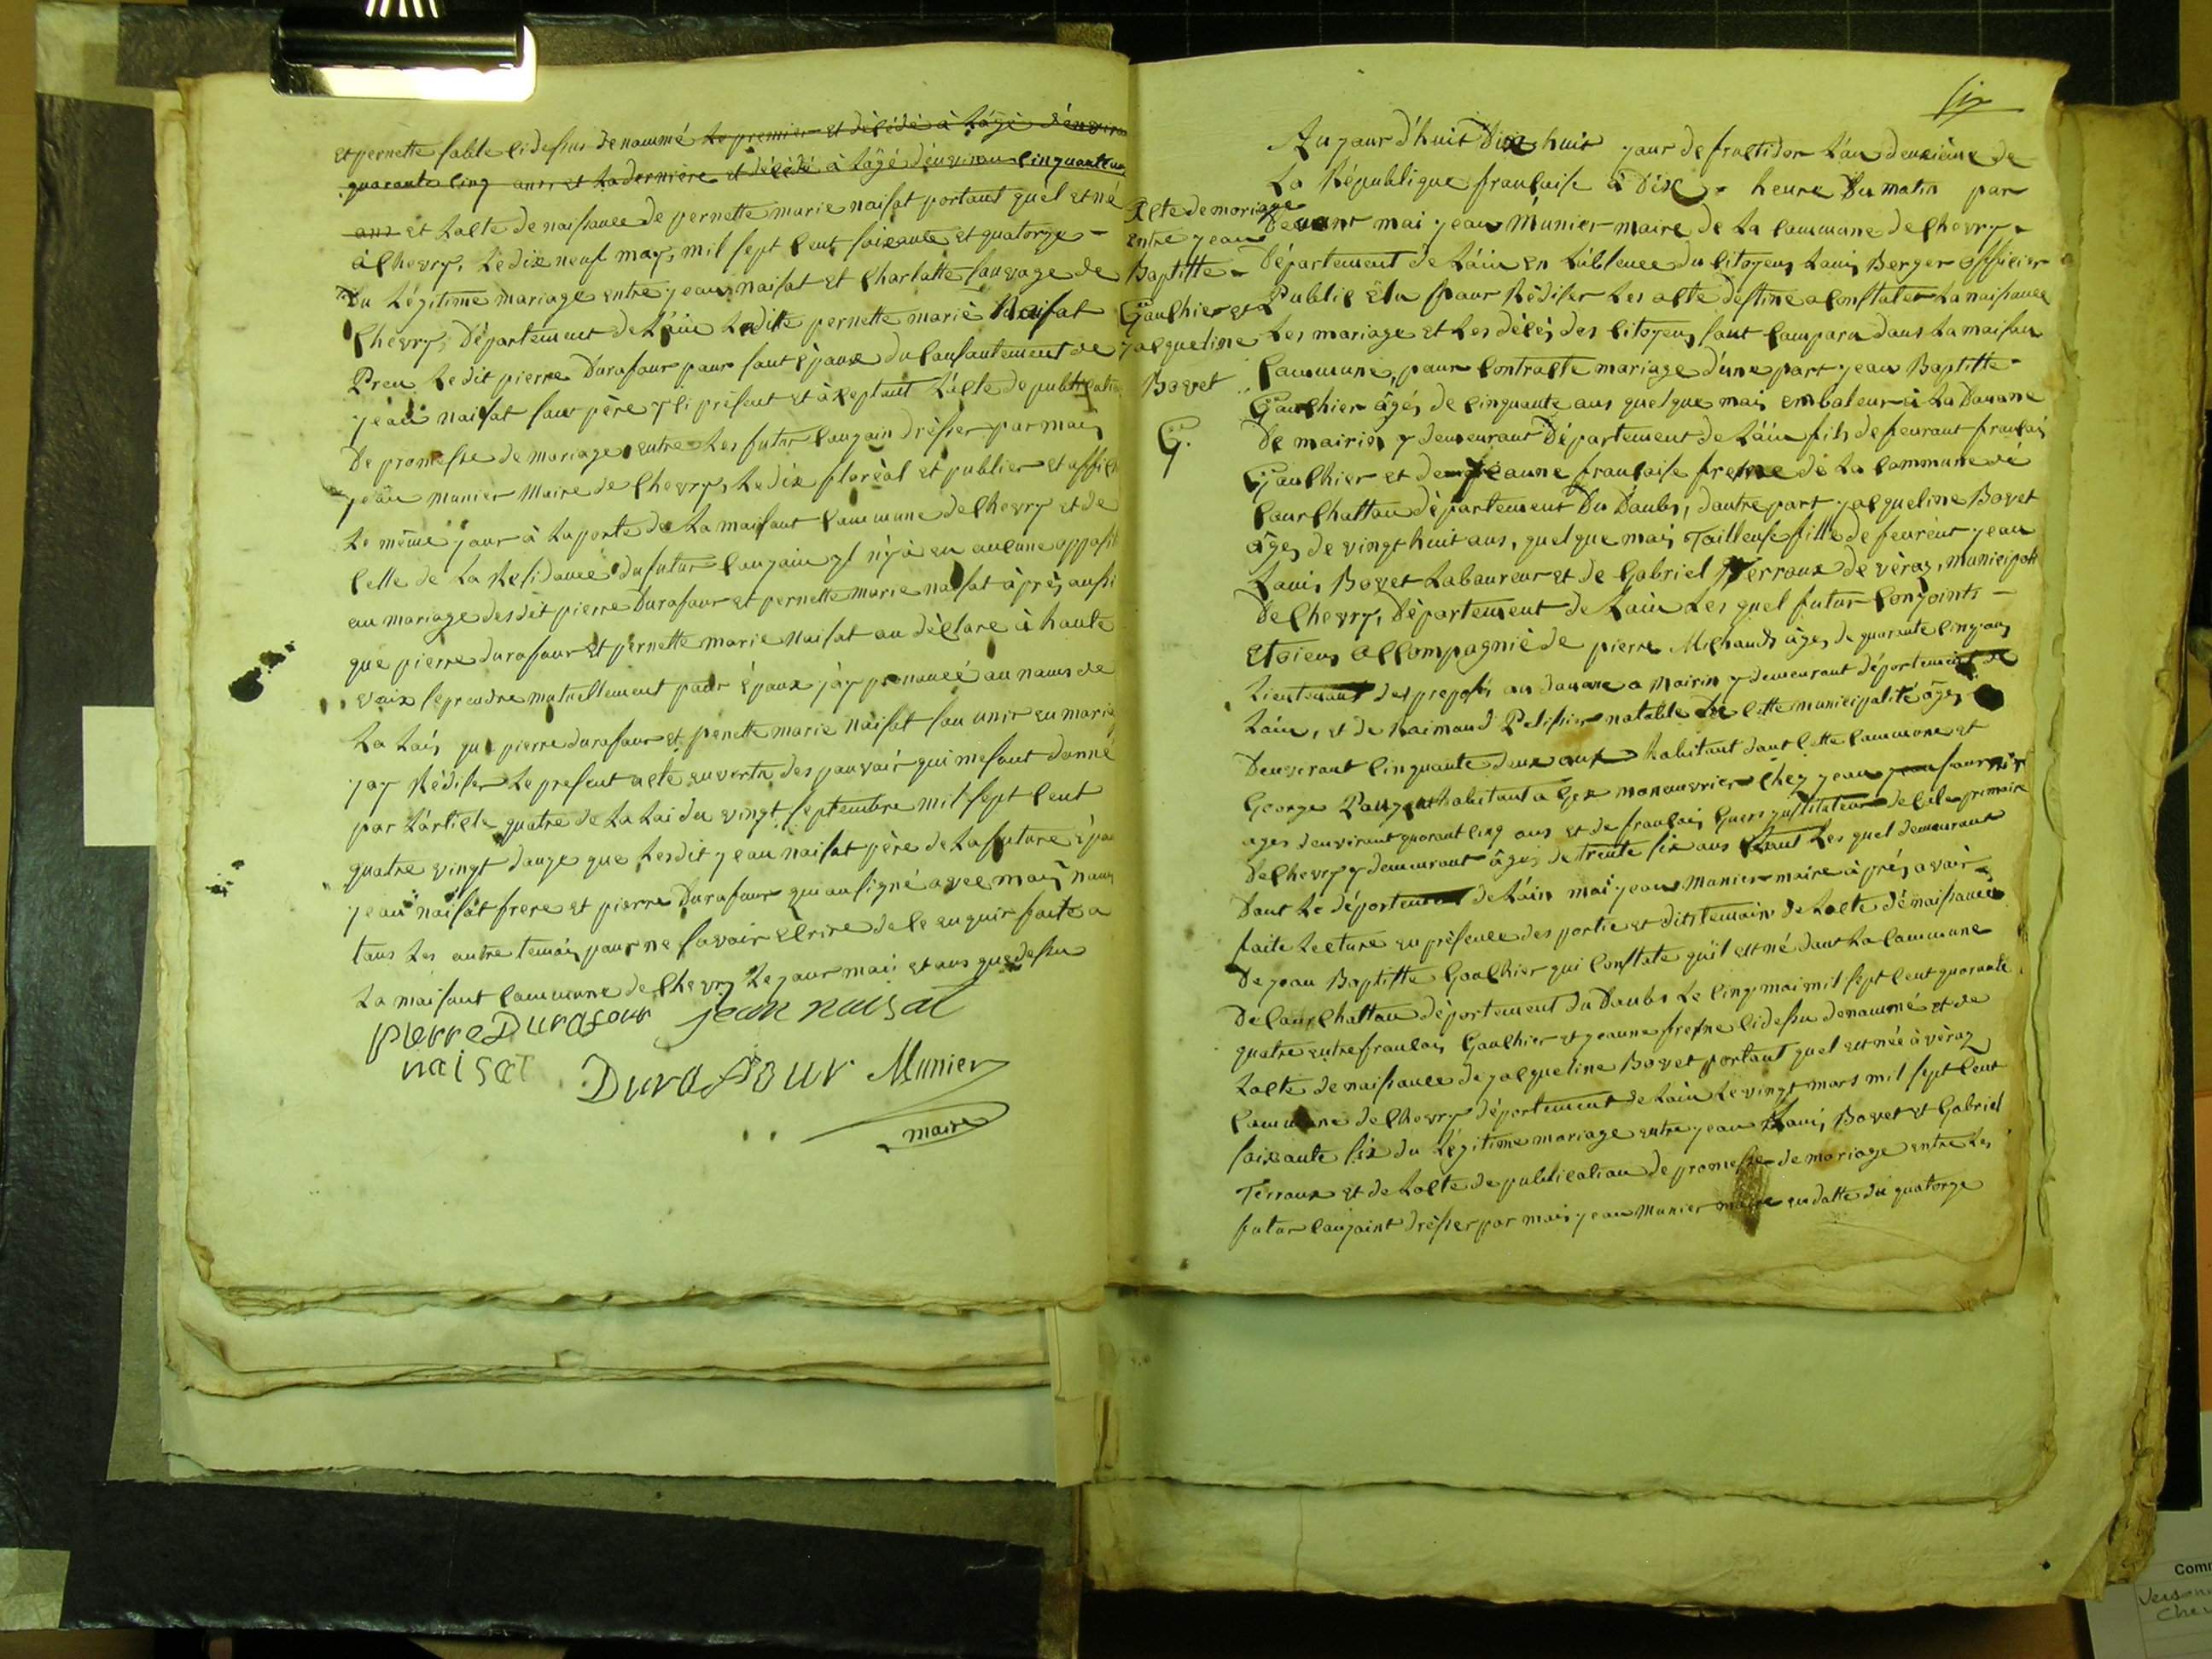 et pernette fable cidessus denaummé le premier et décédé à lâgé d'enviro
quarante cinq anss et la dernière et décédé à lâgé d'environ cinquanteun
ans et lacte de naissance de pernette marie naisat portant quel et né
à Chevry, le dix neuf may, mil sept cent soixante et quatorze -
du légitime mariage entre jean naisat et Charlatte sauvage de
Chevry, département de L'ain Laditte pernette marie Naisat
Preu Ledit pierre Durafour pour saut épaux du Causantement de
jean naisat sau père yci présent et àxeptant lacte de publication
de promesse de mariage entre les futur caujain drésser par mai
jean munier Maire de Chevry, le dix floréal et publier et affich
le même jaur à la porte de la maisaut Caummune de Chevry et de
Celle de la Residance du futur Caujain yl n'y à eu aucune oppositi
au mariage desdit pierre Durafour et pernette marie naisat après aussi
que pierre durafour et pernette marie naisat au déclare à haute
vaix seprendre mutuellement paur épaux j'ay pranancé au naum de
la Lais que pierre durafour et pernette marie naisat sau unir en mariag
j'ay Rédiser le present acte en vertu des pauvair qui mesant danné
par l'article quatre de la Lai du vingt septembre mil sept cent
quatre vingt dauze que lesdit jean naisat père de la future épau
jean naisat frere et pierre Durafour qui au signé avec mai naun
taus les autre temain paur ne savoir écrire de le enquir faite a
la maisaut Caummune de Chevry le jaur mais et ans que dessu
pierre Durafour jean naisat
naisat Durafour Munier
maire
six
Acte de mariage
entre jean
Baptiste
Gaulhier et
jacqueline
Bovet
G.
Aujaur d'huit Dixe huit jaur de fructidor L'an deuxième de
La République francaise à Dixe heure Du matin par
Devant mai jean Munier maire de la Caummune de Chevry
Département de L'ain en L'absence du Citoyen Lauis Berger officier
Public élu paur Rédiser les acte destine a Constater la naissance
Les mariage et les décés des Citoyens saut Camparu dans la maisau
Caummune, paur Contracte mariage d'une part jean Baptiste
Gaulhier âgés de cinquante ans quelque mais embaleur à la Dauane
de mairin y demeurant Département de L'ain fils de feu frantz francais
Gaulhier et de jeanne francaise fresne dé La Commune dé
Caurchattan département Du Daubs, dautre part jacqueline Bovet
âges de vingt huit ans, quelque mais Tailleuse fille de jean
Lauis Bovet Labaureur et de Gabriel Terraux de vèraz, municipali
De Chevry, Département de Lain Les quel futur Conjoints
Etoien accompagnié de pierre Michaud âges de quarante cinq ans
Lieutenant des preposés au dauane a Mairin y demeurant département de
Lain, et de Raimaud Pelissier natable de Cette municipalité âges
Deuvirant cinquante deux ans habitant dant Cette Caummune et
George Lauzau habitant a Gex maneuvrier Chez jean jean fournier
ages denvirant quarant cinq ans et de francais Guers justituteur de Ecle primaire
de Chevry y demeurant âgés de trente six ans Les quel demeurant
Dant Le département de Lain mai jean Munier maire après avair
faite Lecture en présence des partie et dits temain de Lacte dé naissance
De jean Baptiste Gaulhier qui Constate qu'il est né dant La Caummune
de Caurchattan département du Daubs Le cinq mai mil sept cent quarante
quatre entre francais Gaulhier et jeanne fresne cidessu denaummé et de
Lacte de naissance de jacqueline Bovet portant quel est née à vèraz
Caummune de Chevry département de Lain Le vingt mars mil sept cent
soixante six du Légitime mariage entre jean Lauis Bovet et Gabriel
Terraux et de Lacte de publication de promesse de mariage entre Les
futur caujaint drésser par mais jean munier maire en datte du quatorze